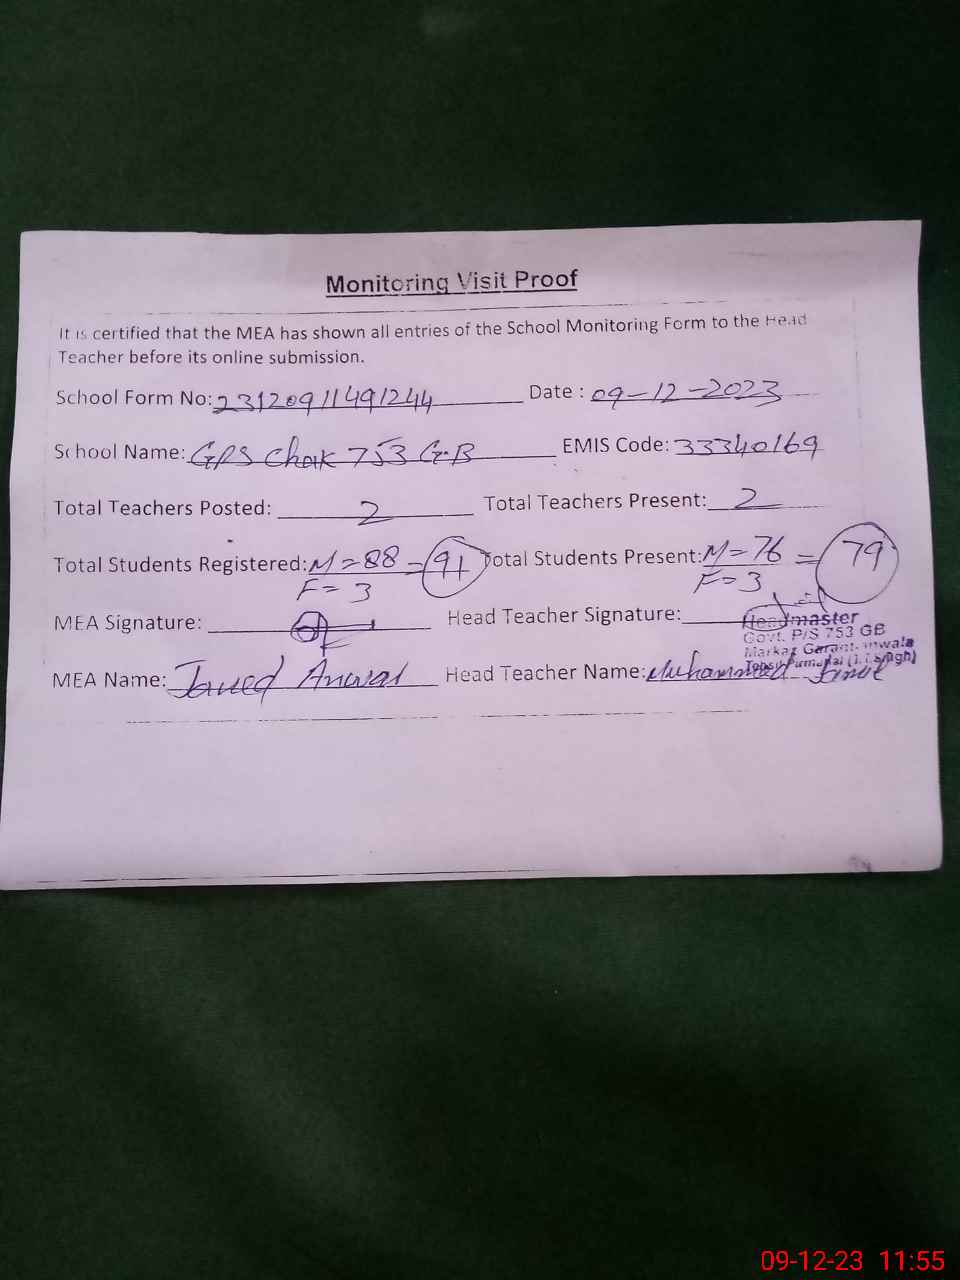 Monitoring Visit Proof
It is certified that the MEA has shown all entries of the School Monitoring Form to the Head
Teacher before its online submission.
School Form No: 23120911491244 Date : 09-12-2023
School Name: GPS Chak 753 G.B EMIS Code: 33340169
Total Teachers Posted: 2 Total Teachers Present: 2
Total Students Registered: M=88 = 91 Total Students Present: M=76 = 79
F=3 F=3
MEA Signature: Head Teacher Signature:
Headmaster
Govt. P/S 753 GB
Markaz
MEA Name: Javed Anwar Head Teacher Name: Muhammad
09-12-23 11:55